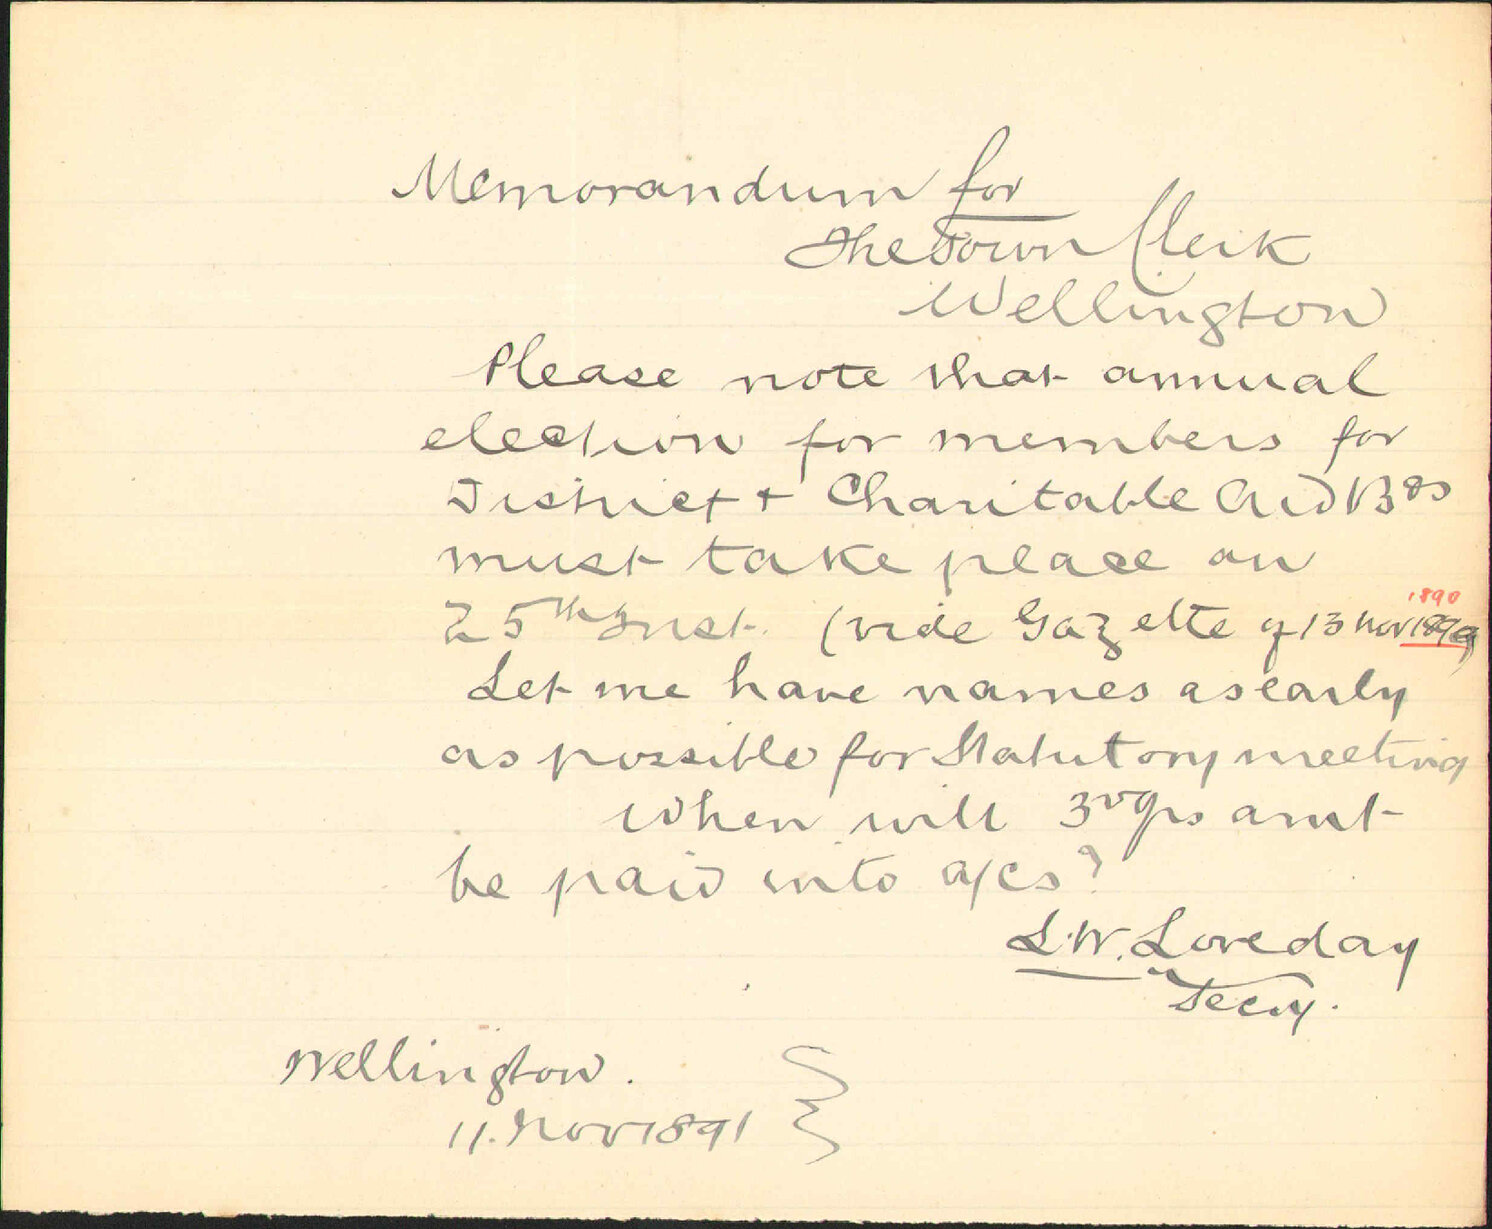 Memorandum for
The Town Clerk
Wellington
Please note that annual
election for members for
District + Charitable Aid Bds
must take place on
1890
25th Inst. (vide Gazette of 13 Nov
Let me have names as early
as possible for Statutory meeting
When will 3rd qrs amt
be paid into a/cs?
L.W. Loveday
Secy.
Wellington.
11. Nov 1891